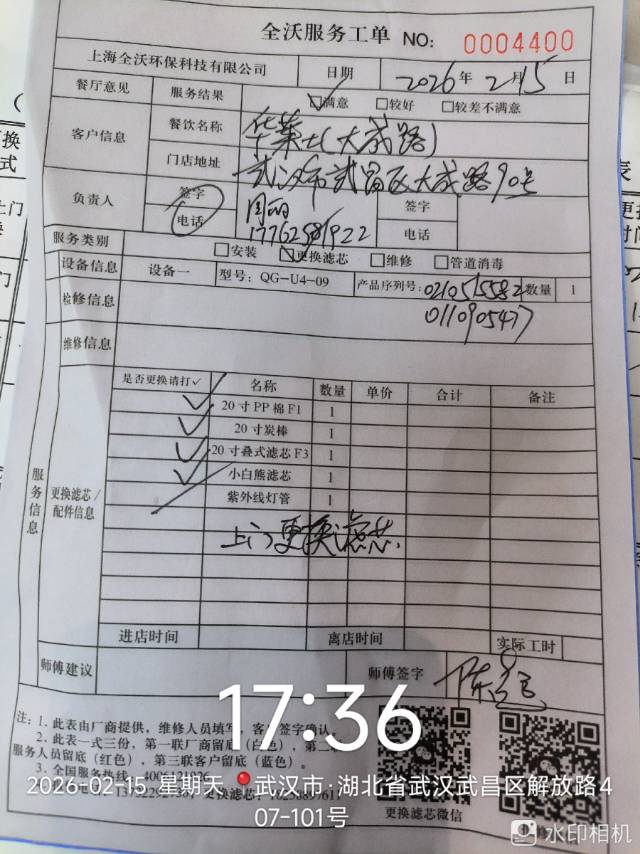 全沃服务工单 NO: 0004400
上海全沃环保科技有限公司 日期 2026年2月15日
餐厅意见 服务结果 ☑满意 □较好 □较差不满意
客户信息 餐饮名称 华莱士(大成路)
门店地址 武汉市武昌区大成路90号
负责人 签字 周丽 签字
电话 17762581922 电话
服务类别 □安装 ☑更换滤芯 □维修 □管道消毒
设备信息 设备一 型号: QG-U4-09 产品序列号: 数量 1
0110905477
检修信息
维修信息
服务信息
更换滤芯/配件信息
是否更换请打✓ 名称 数量 单价 合计 备注
✓ 20寸PP棉F1 1
✓ 20寸炭棒 1
✓ 20寸叠式滤芯F3 1
✓ 小白熊滤芯 1
紫外线灯管 1
上门更换滤芯
进店时间 离店时间 实际工时
师傅建议 师傅签字
17:36
注: 1. 此表由厂商提供，维修人员填写，客户签字确认
2. 此表一式三份，第一联厂商留底（白色），第二
服务人员留底（红色），第三联客户留底（蓝色）。
3. 全国服务热线
更换滤芯微信
2026-02-15 星期天 武汉市·湖北省武汉武昌区解放路4
07-101号
水印相机